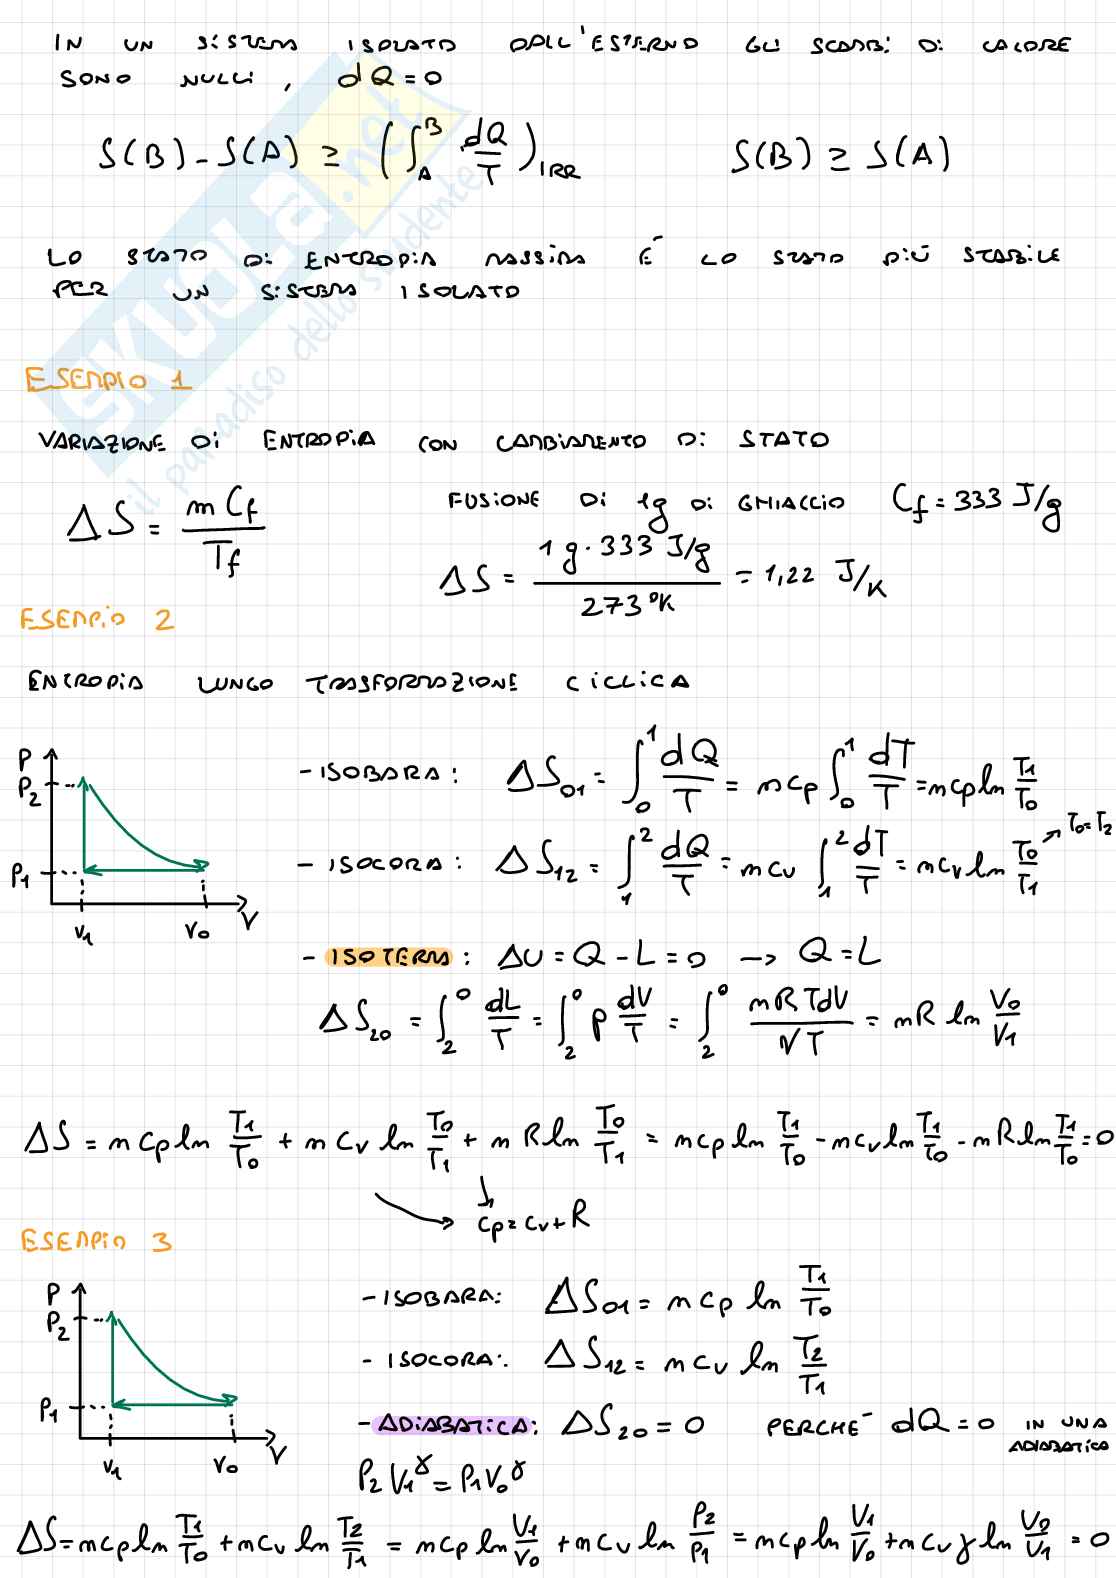 IN UN SISTEMA ISOLATO DALL'ESTERNO GLI SCAMBI DI CALORE
SONO NULLI, dQ=0
S(B)-S(A) ≥ (∫_A^B dQ/T)_IRR     S(B) ≥ S(A)
LO STATO DI ENTROPIA MASSIMA È LO STATO PIÙ STABILE
PER UN SISTEMA ISOLATO
ESEMPIO 1
VARIAZIONE DI ENTROPIA CON CAMBIAMENTO DI STATO
ΔS = m C_f / T_f
FUSIONE DI 1g DI GHIACCIO C_f = 333 J/g
ΔS = 1 g · 333 J/g / 273 °K = 1,22 J/K
ESEMPIO 2
ENTROPIA LUNGO TRASFORMAZIONE CICLICA
P
P_2
P_1
V_1 V_0 V
- ISOBARA: ΔS_01 = ∫_0^1 dQ/T = m c_p ∫_0^1 dT/T = m c_p ln T_1/T_0
- ISOCORA: ΔS_12 = ∫_1^2 dQ/T = m c_v ∫_1^2 dT/T = m c_v ln T_0/T_1 ↗ T_0=T_2
- ISOTERMA: ΔU = Q - L = 0 → Q = L
ΔS_20 = ∫_2^0 dL/T = ∫_2^0 p dV/T = ∫_2^0 mRTdV/VT = mR ln V_0/V_1
ΔS = m c_p ln T_1/T_0 + m c_v ln T_0/T_1 + m R ln T_0/T_1 = m c_p ln T_1/T_0 - m c_v ln T_1/T_0 - m R ln T_1/T_0 = 0
c_p = c_v + R
ESEMPIO 3
P
P_2
P_1
V_1 V_0 V
- ISOBARA: ΔS_01 = m c_p ln T_1/T_0
- ISOCORA: ΔS_12 = m c_v ln T_2/T_1
- ADIABATICA: ΔS_20 = 0 PERCHÉ dQ = 0 IN UNA ADIABATICA
P_2 V_1^γ = P_1 V_0^γ
ΔS = m c_p ln T_1/T_0 + m c_v ln T_2/T_1 = m c_p ln V_1/V_0 + m c_v ln P_2/P_1 = m c_p ln V_1/V_0 + m c_v γ ln V_0/V_1 = 0
SKUOLA.net
il paradiso dello studente